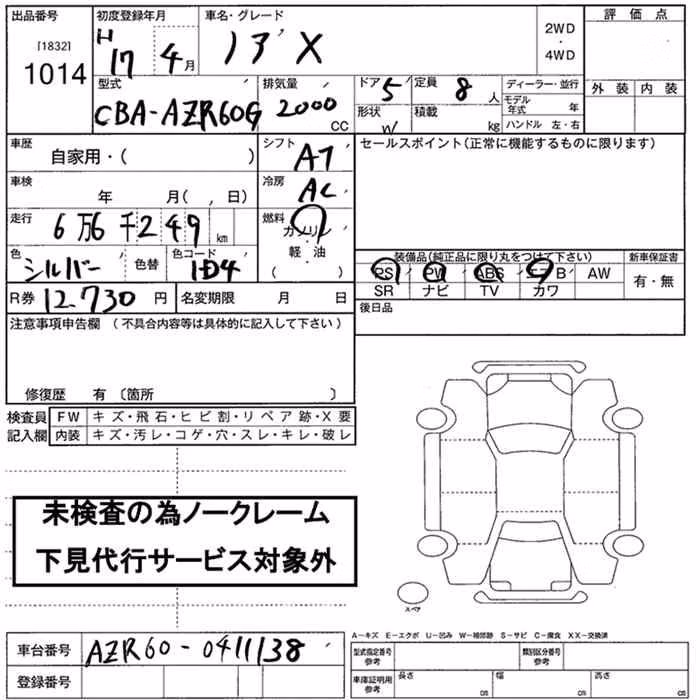 出品番号 初度登録年月 車名・グレード 評価点
[1832] H 2WD
1014 17 4月 ノア X 4WD
型式 排気量 ドア 5 定員 8人 ディーラー・並行 外装 内装
CBA-AZR60G 2000 CC 形状 W 積載 kg モデル年式 年
ハンドル 左・右
車歴 自家用・( ) シフト AT セールスポイント(正常に機能するものに限ります)
車検 年 月( , 日) 冷房 AC
走行 6万6千249 km 燃料 ガソリン
色 シルバー 色替 色コード 1D4 軽油 ( ) 装備品(純正品に限り丸をつけて下さい) 新車保証書
PS PW ABS エアB AW 有・無
R券 12,730 円 名変期限 月 日 SR ナビ TV カワ
注意事項申告欄 (不具合内容等は具体的に記入して下さい) 後日品
修復歴 有 〔箇所 〕
検査員 FW キズ・飛石・ヒビ割・リペア跡・X要
記入欄 内装 キズ・汚レ・コゲ・穴・スレ・キレ・破レ
未検査の為ノークレーム
下見代行サービス対象外
スペア
A-キズ E-エクボ U-凹み W-補修跡 S-サビ C-腐食 XX-交換済
車台番号 AZR60-0411138 型式指定番号 参考 類別区分番号 参考
登録番号 車庫証明用 参考 長さ cm 幅 cm 高さ cm